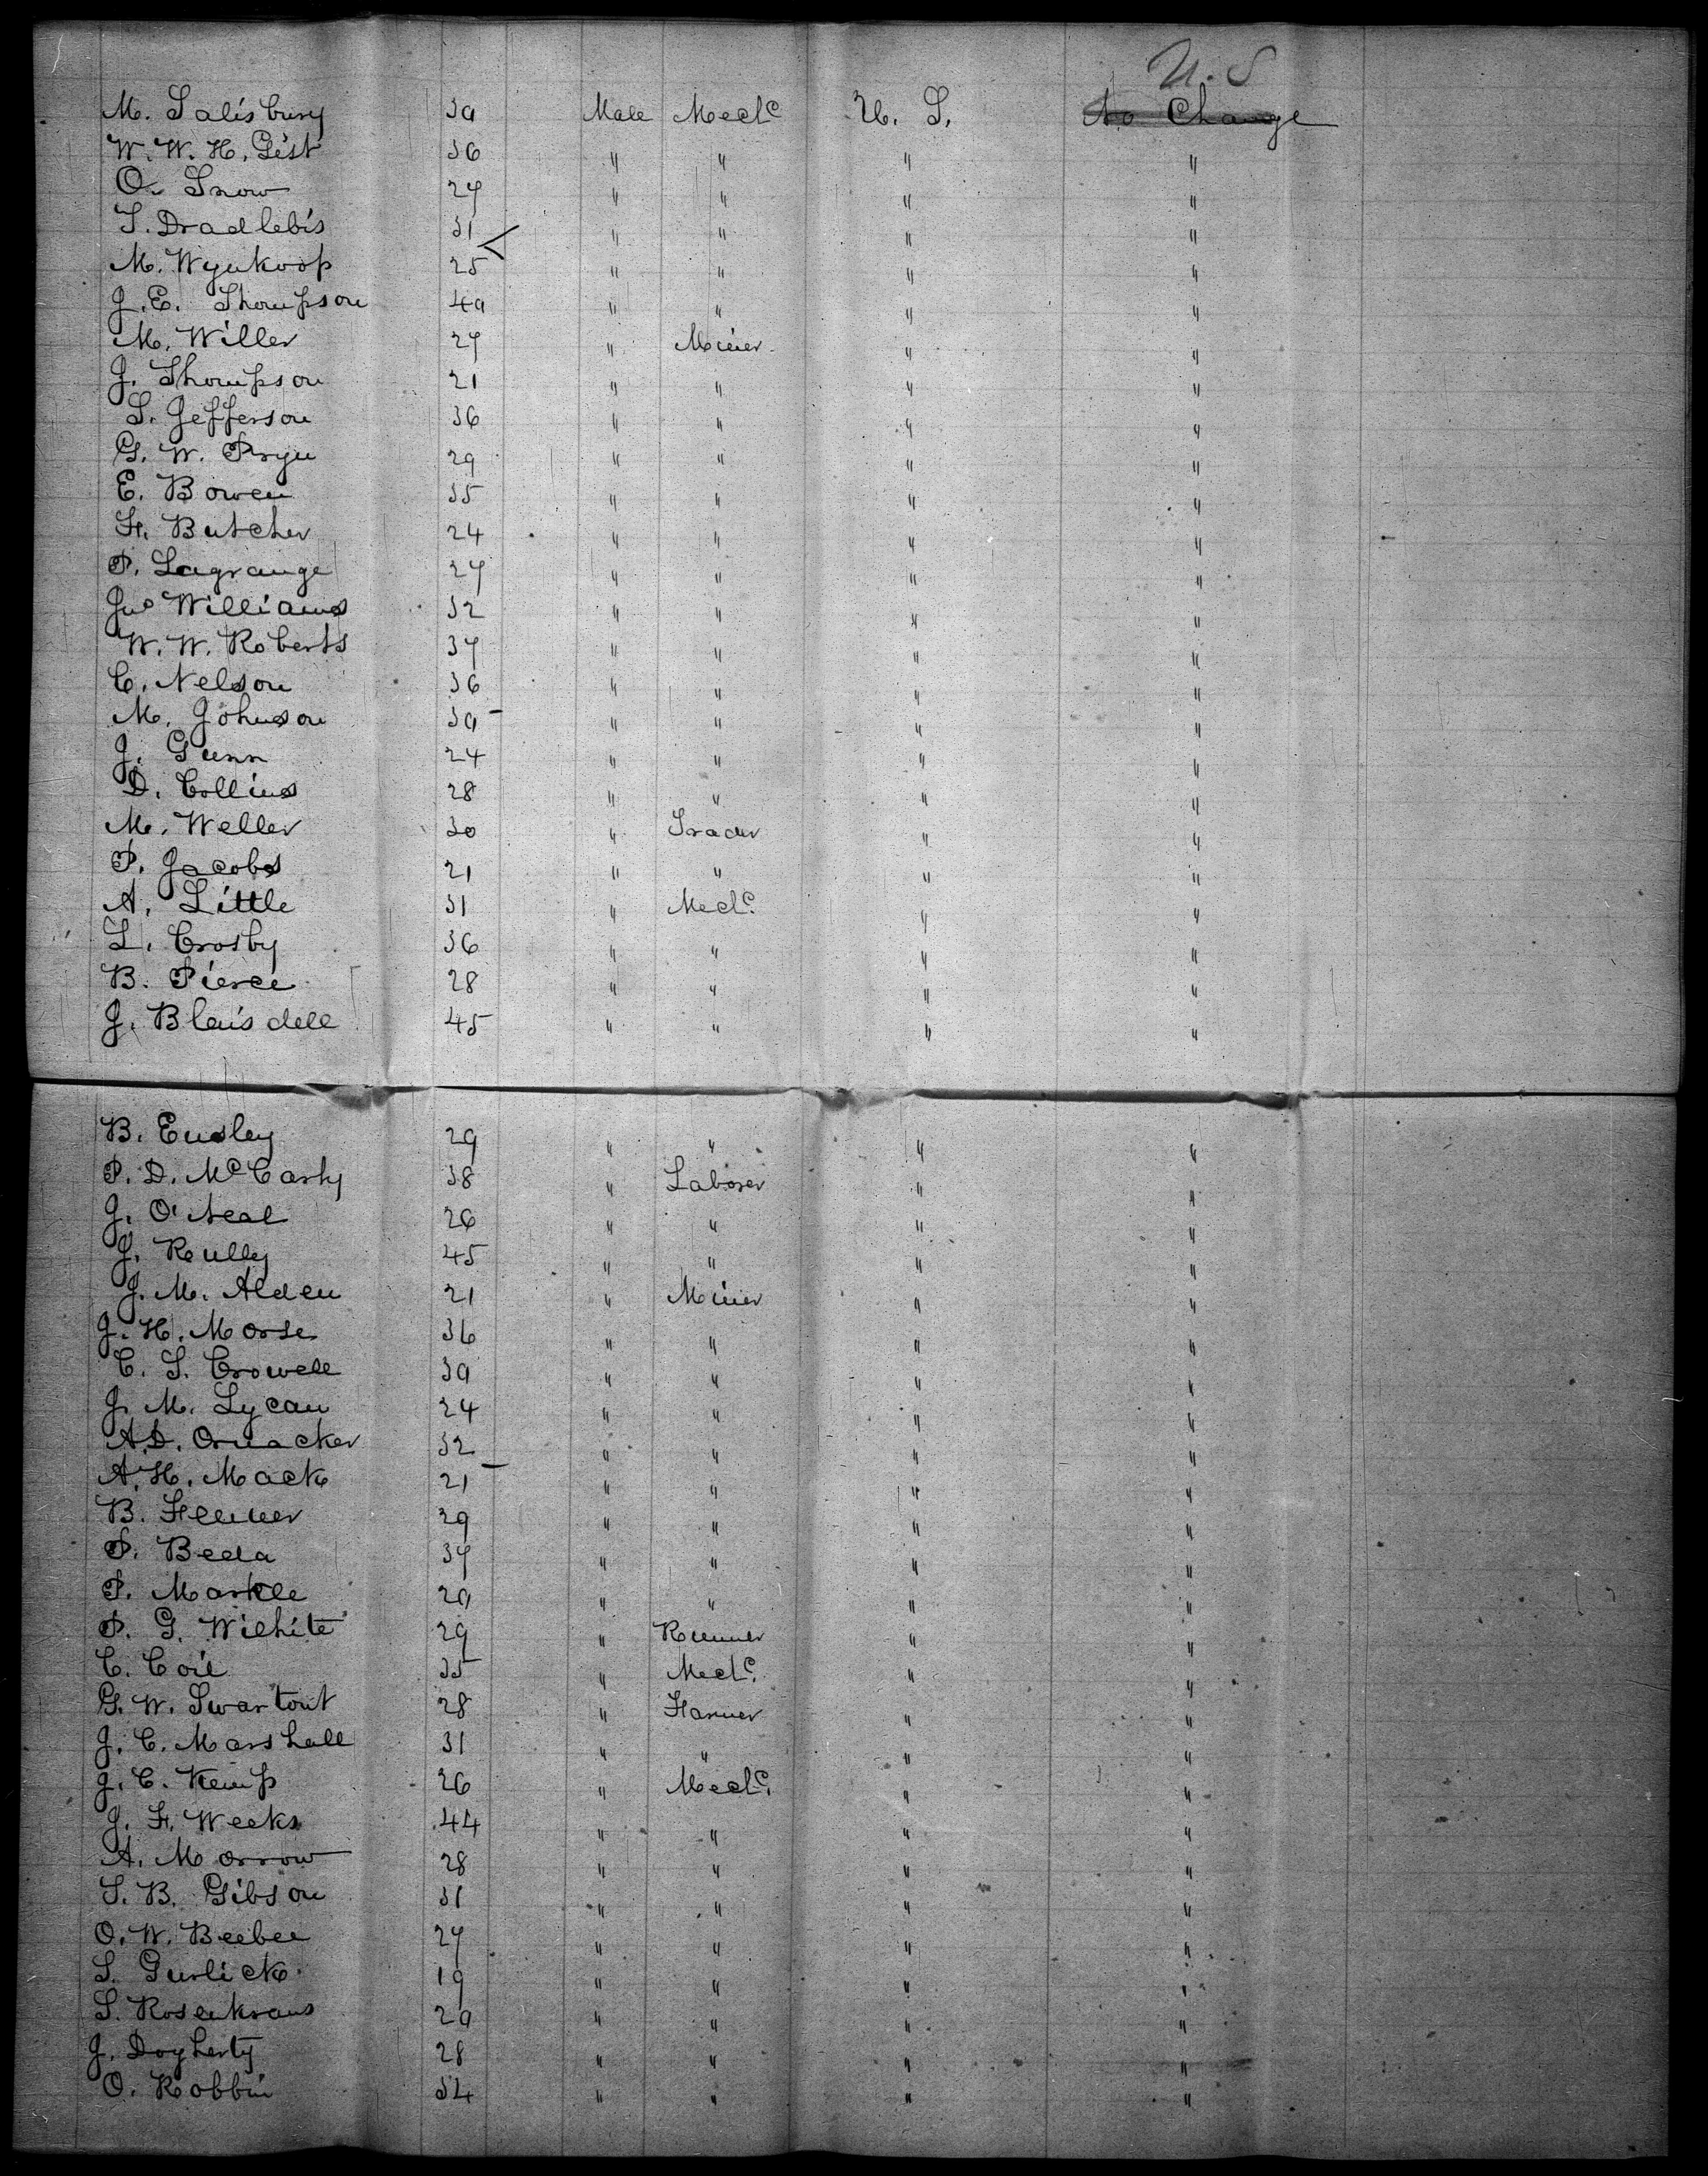 U. S
M. Salisbury 39 Male Mech<sup>c</sup> U. S. No Change
W. W. H. Gist 36 " " " "
O. Snow 27 " " " "
S. Dradlebis 31 " " " "
M. Wynkoop 25 " " " "
J. E. Thompson 49 " " " "
M. Willer 27 " Miner " "
J. Thompson 21 " " " "
T. Jefferson 36 " " " "
G. W. Pryn 29 " " " "
E. Bowen 35 " " " "
F. Butcher 24 " " " "
P. Lagrange 27 " " " "
Jno Williams 32 " " " "
W. W. Roberts 37 " " " "
C. Nelson 36 " " " "
M. Johnson 39 " " " "
J. Gunn 24 " " " "
D. Collins 28 " " " "
M. Weller 30 " Trader " "
P. Jacobs 21 " " " "
A. Little 31 " Mech<sup>c</sup>. " "
L. Crosby 36 " " " "
B. Pierce 28 " " " "
J. Blaisdell 45 " " " "
B. Ensley 29 " " " "
P. D. McCarty 38 " Laborer " "
J. O'Neal 26 " " " "
J. Rully 45 " " " "
J. M. Alden 21 " Miner " "
J. H. Morse 36 " " " "
C. S. Crowell 39 " " " "
J. M. Lycan 24 " " " "
A. D. Omacker 32 " " " "
A. H. Mack 21 " " " "
B. Flemer 29 " " " "
P. Beda 37 " " " "
P. Markle 29 " " " "
P. G. Wilhite 29 " Runner " "
C. Coil 35 " Mech<sup>c</sup>. " "
G. W. Swartout 28 " Farmer " "
J. C. Marshall 31 " " " "
J. C. Kemp 26 " Mech<sup>c</sup>. " "
J. F. Weeks 44 " " " "
A. Morrow 28 " " " "
S. B. Gibson 31 " " " "
O. W. Beebee 27 " " " "
S. Gurlick 19 " " " "
S. Rosenkrans 29 " " " "
J. Dogherty 28 " " " "
O. Robbin 34 " " " "